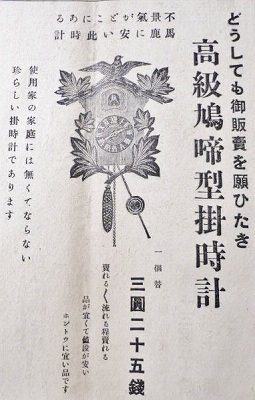 どうしても御販賣を願ひたき
高級鳩啼型掛時計
不景氣がどこにある
馬鹿に安い此時計
一個替
三圓二十五錢
賣れる〱流れる程賣れる
品が宜くて値段が安い
ホントウに宜い品です
使用家の家庭には無くてならない
珍らしい掛時計であります